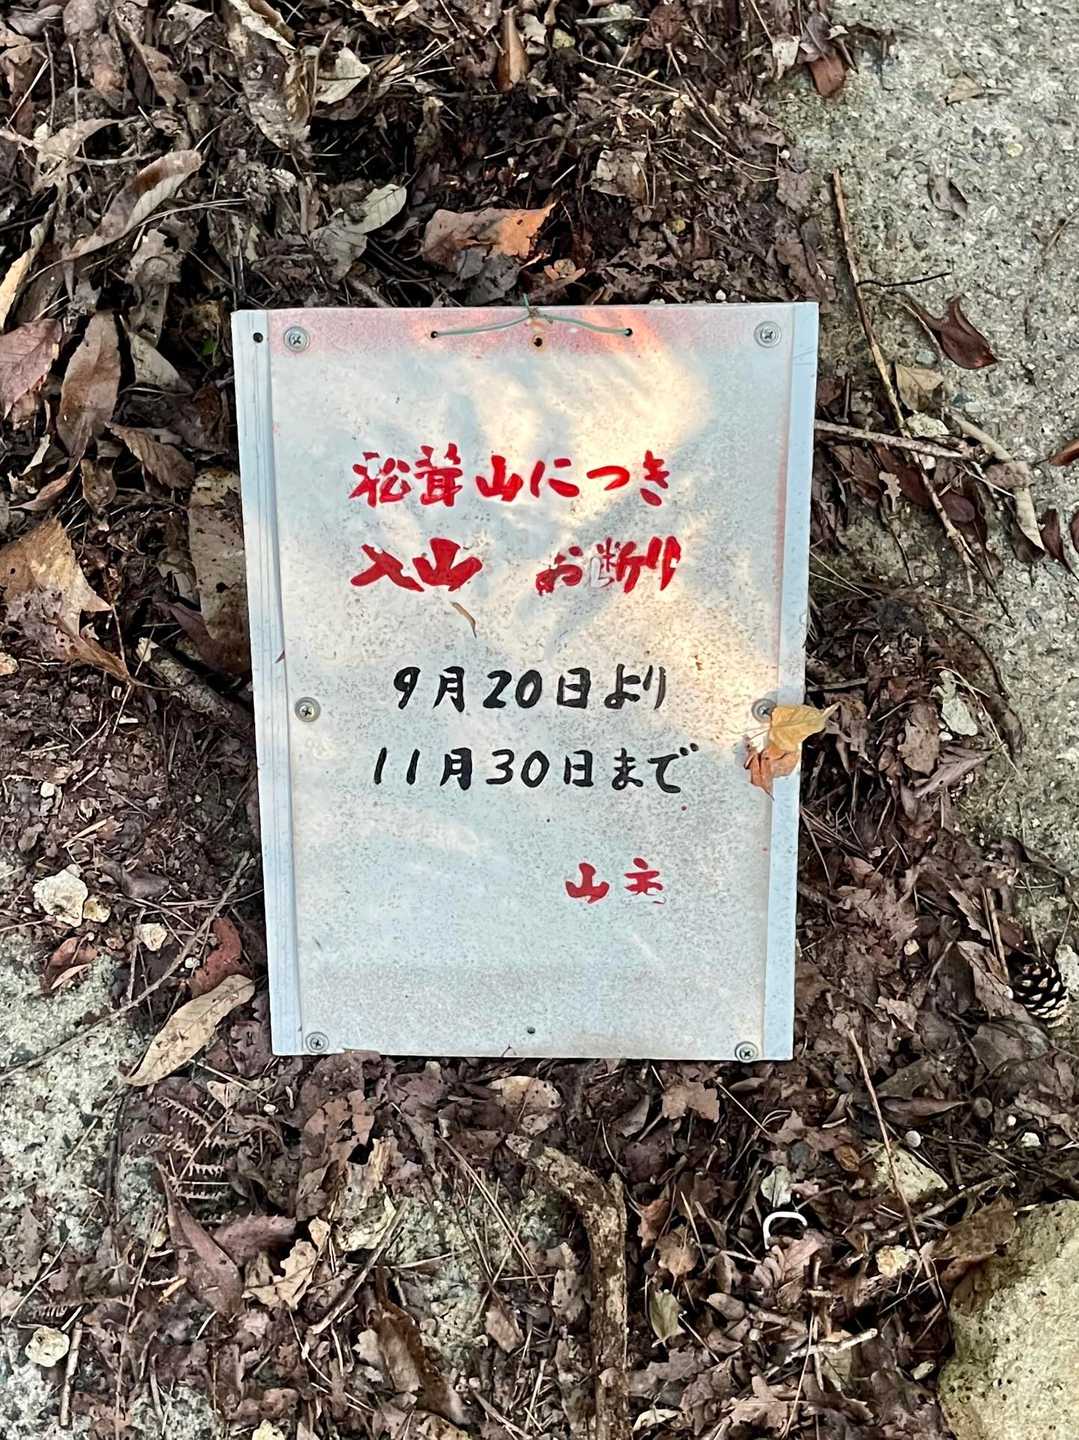 松茸山につき
入山 お断り
9月20日より
11月30日まで
山主